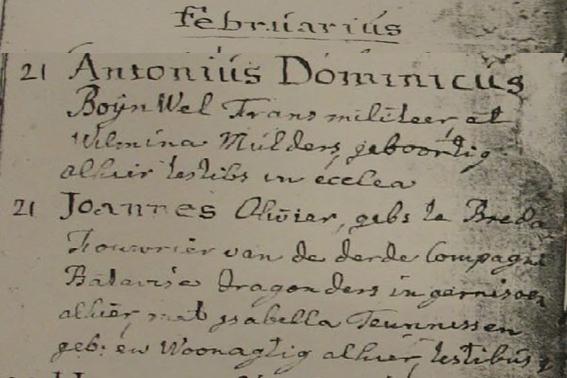 Februarius
21 Antonius Dominicus
Boÿnwel Frans militeer, et
Wilmina Mulders geboortig
alhier testibs in ecclea
21 Joannes Olivier, geb: te Breda
Fouvrier van de derde Compagni
Batavise dragonders in gernisoen
alhier, met ysabella Teunnissen
geb: en Woonagtig alhier, testibus